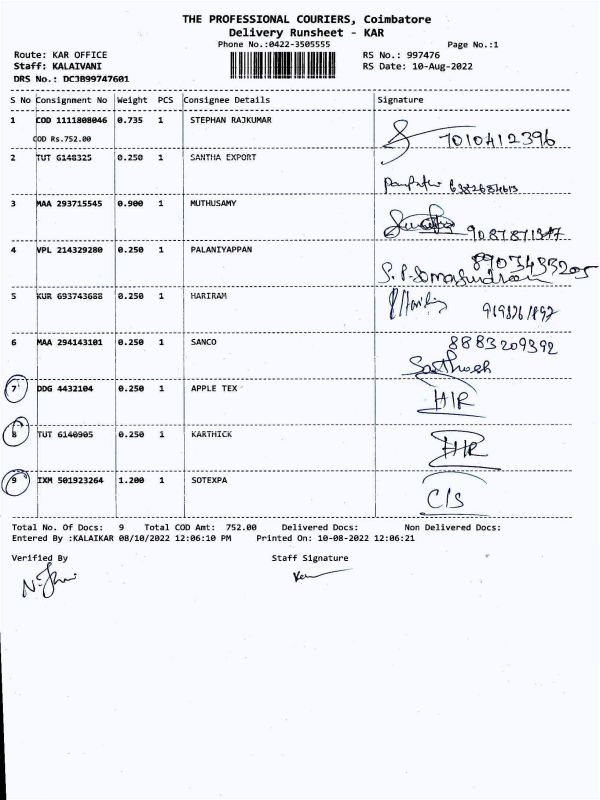 THE PROFESSIONAL COURIERS, Coimbatore
Delivery Runsheet - KAR
Phone No.:0422-3505555 Page No.:1
Route: KAR OFFICE RS No.: 997476
Staff: KALAIVANI RS Date: 10-Aug-2022
DRS No.: DCJB99747601
S No Consignment No Weight PCS Consignee Details Signature
1 COD 1111808046 0.735 1 STEPHAN RAJKUMAR
COD Rs.752.00 7010412396
2 TUT G148325 0.250 1 SANTHA EXPORT
3 MAA 293715545 0.900 1 MUTHUSAMY
4 VPL 214329280 0.250 1 PALANIYAPPAN
5 KUR 693743688 0.250 1 HARIRAM
6 MAA 294143101 0.250 1 SANCO 8883209392
Santhosh
7 DDG 4432104 0.250 1 APPLE TEX H/R
8 TUT 6140905 0.250 1 KARTHICK H/R
9 IXM 501923264 1.200 1 SOTEXPA C/S
Total No. Of Docs: 9 Total COD Amt: 752.00 Delivered Docs: Non Delivered Docs:
Entered By :KALAIKAR 08/10/2022 12:06:10 PM Printed On: 10-08-2022 12:06:21
Verified By Staff Signature